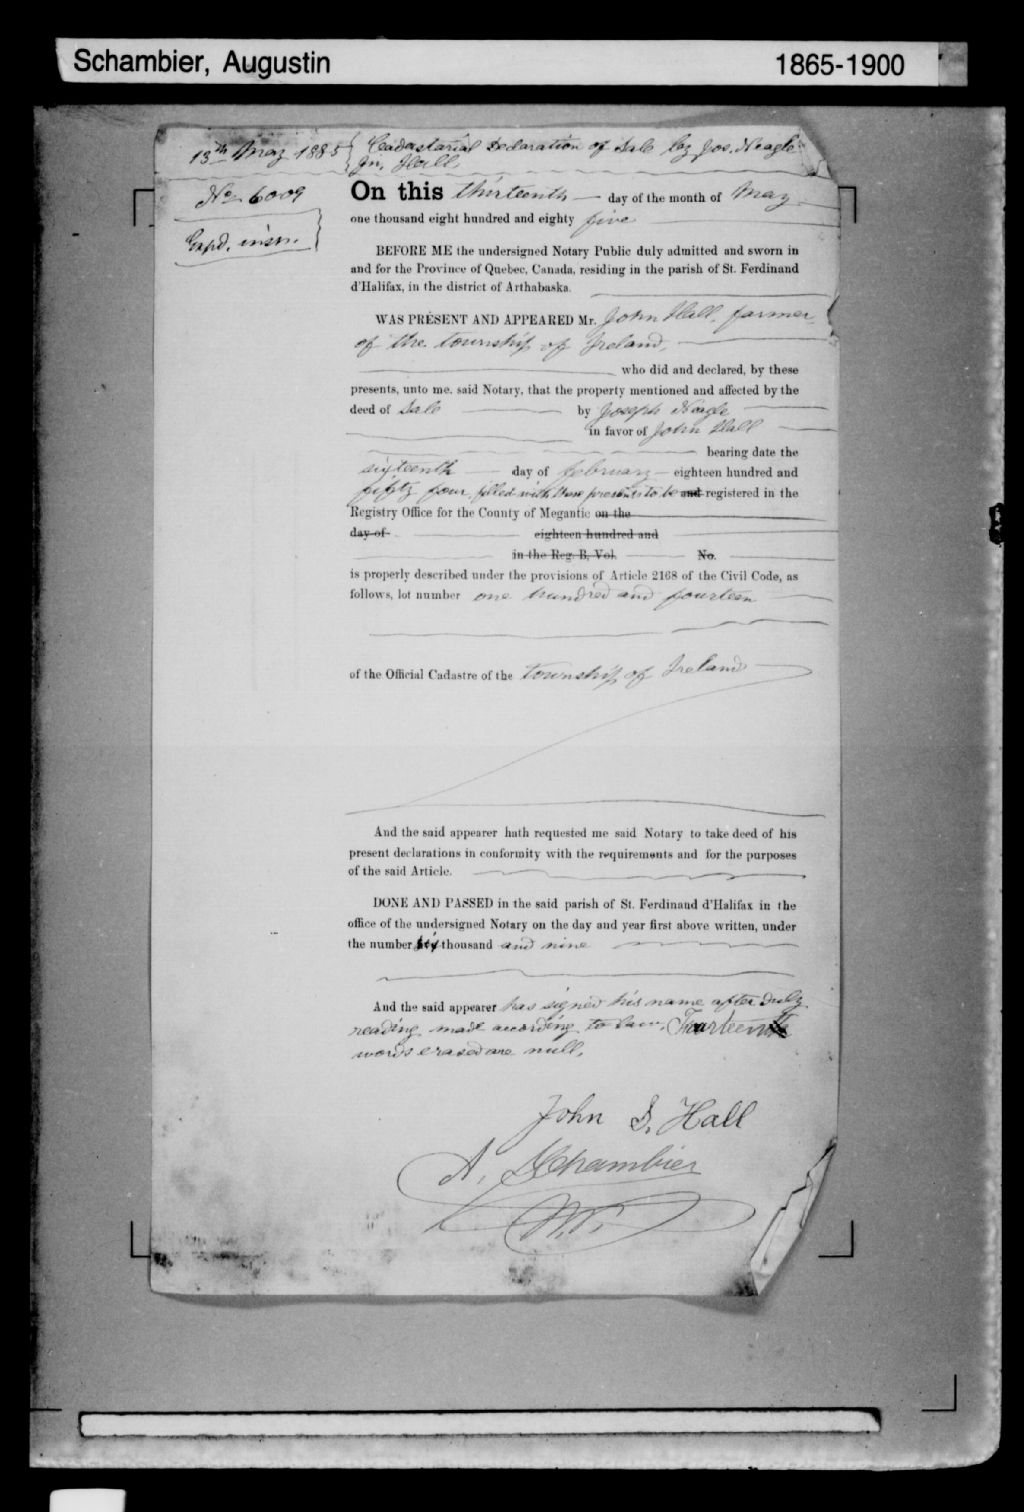 Schambier, Augustin 1865-1900
13th May 1885 } Cadastarial Declaration of Sale by Jos. Neagle
Jn. Hall.
No 6009
Expd. insn. }
On this thirteenth — day of the month of May
one thousand eight hundred and eighty five
BEFORE ME the undersigned Notary Public duly admitted and sworn in
and for the Province of Quebec, Canada, residing in the parish of St. Ferdinand
d'Halifax, in the district of Arthabaska.
WAS PRESENT AND APPEARED Mr. John Hall, farmer
of the township of Ireland,
who did and declared, by these
presents, unto me, said Notary, that the property mentioned and affected by the
deed of Sale by Joseph Neagle
in favor of John Hall
bearing date the
sixteenth — day of february — eighteen hundred and
fifty four, filled with these presents to be and registered in the
Registry Office for the County of Megantic on the
day of eighteen hundred and
in the Reg. B, Vol. No.
is properly described under the provisions of Article 2168 of the Civil Code, as
follows, lot number one hundred and fourteen
of the Official Cadastre of the township of Ireland
And the said appearer hath requested me said Notary to take deed of his
present declarations in conformity with the requirements and for the purposes
of the said Article.
DONE AND PASSED in the said parish of St. Ferdinand d'Halifax in the
office of the undersigned Notary on the day and year first above written, under
the number six thousand and nine
And the said appearer has signed his name after duly
reading made according to law. Fourteen
words erased are null.
John S. Hall
A. Schambier
N.P.